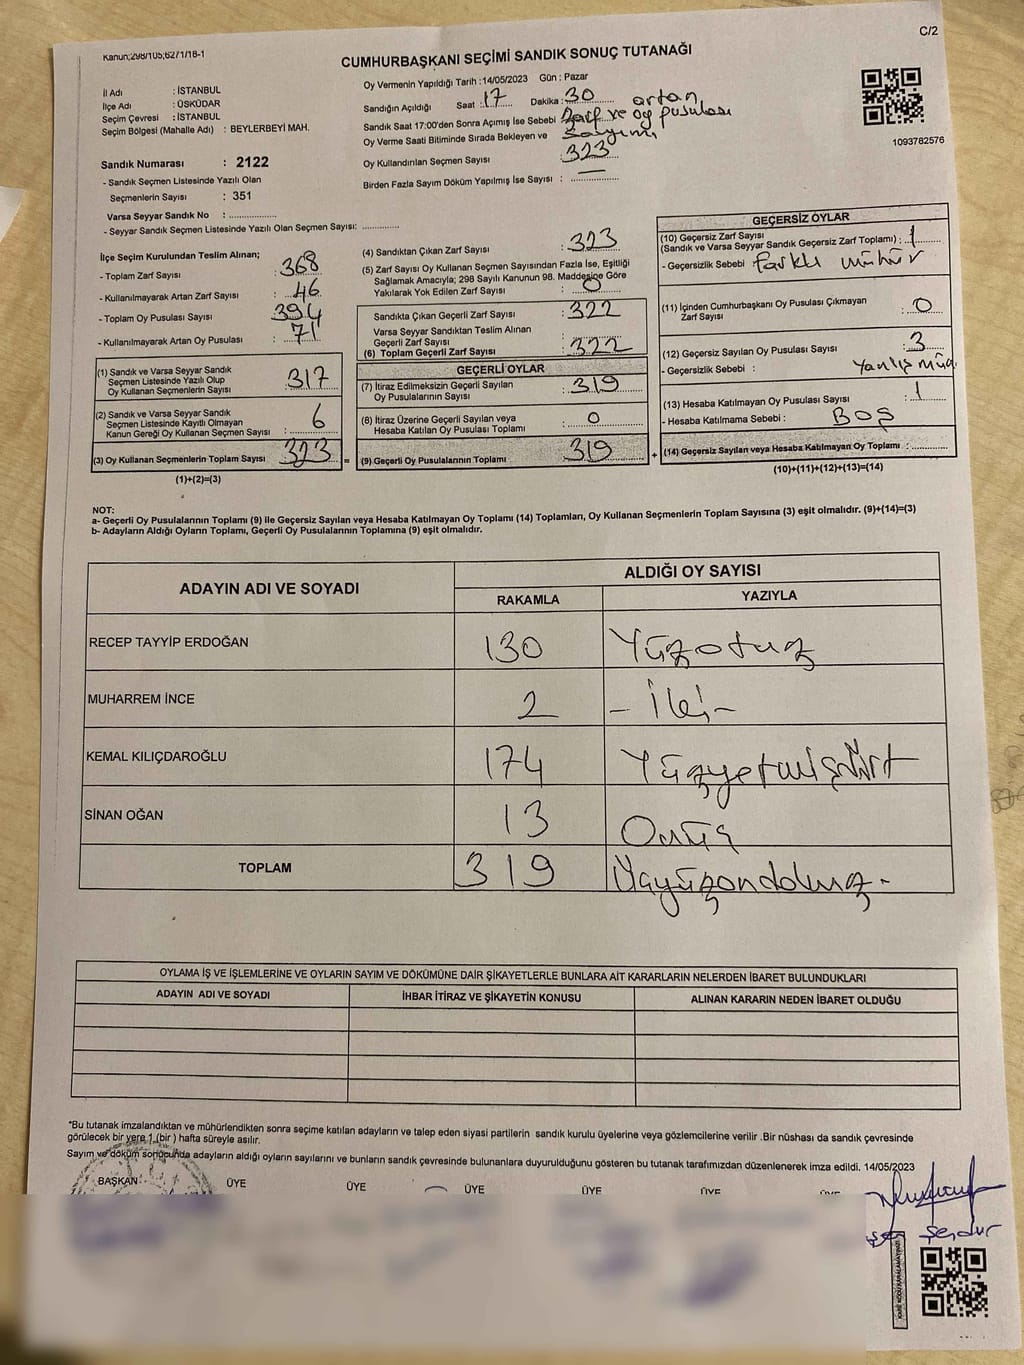 Kanun;298/105;6271/18-1
C/2
CUMHURBAŞKANI SEÇİMİ SANDIK SONUÇ TUTANAĞI
İl Adı : İSTANBUL
İlçe Adı : ÜSKÜDAR
Seçim Çevresi : İSTANBUL
Seçim Bölgesi (Mahalle Adı) : BEYLERBEYİ MAH.
Sandık Numarası : 2122
- Sandık Seçmen Listesinde Yazılı Olan
Seçmenlerin Sayısı : 351
Varsa Seyyar Sandık No :
- Seyyar Sandık Seçmen Listesinde Yazılı Olan Seçmen Sayısı:
Oy Vermenin Yapıldığı Tarih :14/05/2023 Gün : Pazar
Sandığın Açıldığı Saat : 17 Dakika : 30
Sandık Saat 17:00'den Sonra Açımış İse Sebebi artan zarf ve oy pusulası sayımı
Oy Verme Saati Bitiminde Sırada Bekleyen ve
Oy Kullandırılan Seçmen Sayısı 323
Birden Fazla Sayım Döküm Yapılmış İse Sayısı : —
1093782576
İlçe Seçim Kurulundan Teslim Alınan;
- Toplam Zarf Sayısı : 368
- Kullanılmayarak Artan Zarf Sayısı : 46
- Toplam Oy Pusulası Sayısı : 394
- Kullanılmayarak Artan Oy Pusulası : 71
(1) Sandık ve Varsa Seyyar Sandık
Seçmen Listesinde Yazılı Olup
Oy Kullanan Seçmenlerin Sayısı : 317
(2) Sandık ve Varsa Seyyar Sandık
Seçmen Listesinde Kayıtlı Olmayan
Kanun Gereği Oy Kullanan Seçmen Sayısı : 6
(3) Oy Kullanan Seçmenlerin Toplam Sayısı : 323 =
(1)+(2)=(3)
(4) Sandıktan Çıkan Zarf Sayısı : 323
(5) Zarf Sayısı Oy Kullanan Seçmen Sayısından Fazla İse, Eşitliği
Sağlamak Amacıyla; 298 Sayılı Kanunun 98. Maddesine Göre
Yakılarak Yok Edilen Zarf Sayısı : 0
Sandıkta Çıkan Geçerli Zarf Sayısı : 322
Varsa Seyyar Sandıktan Teslim Alınan
Geçerli Zarf Sayısı :
(6) Toplam Geçerli Zarf Sayısı : 322
GEÇERLİ OYLAR
(7) İtiraz Edilmeksizin Geçerli Sayılan
Oy Pusulalarının Sayısı : 319
(8) İtiraz Üzerine Geçerli Sayılan veya
Hesaba Katılan Oy Pusulası Toplamı : 0
(9) Geçerli Oy Pusulalarının Toplamı : 319 +
GEÇERSİZ OYLAR
(10) Geçersiz Zarf Sayısı
(Sandık ve Varsa Seyyar Sandık Geçersiz Zarf Toplamı) : 1
- Geçersizlik Sebebi farklı mühür
(11) İçinden Cumhurbaşkanı Oy Pusulası Çıkmayan
Zarf Sayısı : 0
(12) Geçersiz Sayılan Oy Pusulası Sayısı : 3
- Geçersizlik Sebebi : Yanlış
(13) Hesaba Katılmayan Oy Pusulası Sayısı : 1
- Hesaba Katılmama Sebebi : BOŞ
(14) Geçersiz Sayılan veya Hesaba Katılmayan Oy Toplamı :
(10)+(11)+(12)+(13)=(14)
NOT:
a- Geçerli Oy Pusulalarının Toplamı (9) ile Geçersiz Sayılan veya Hesaba Katılmayan Oy Toplamı (14) Toplamları, Oy Kullanan Seçmenlerin Toplam Sayısına (3) eşit olmalıdır. (9)+(14)=(3)
b- Adayların Aldığı Oyların Toplamı, Geçerli Oy Pusulalarının Toplamına (9) eşit olmalıdır.
ADAYIN ADI VE SOYADI
ALDIĞI OY SAYISI
RAKAMLA YAZIYLA
RECEP TAYYİP ERDOĞAN 130 Yüzotuz
MUHARREM İNCE 2 - İki -
KEMAL KILIÇDAROĞLU 174 Yüzyetmişdört
SİNAN OĞAN 13 Onüç
TOPLAM 319 Üçyüzondokuz-
OYLAMA İŞ VE İŞLEMLERİNE VE OYLARIN SAYIM VE DÖKÜMÜNE DAİR ŞİKAYETLERLE BUNLARA AİT KARARLARIN NELERDEN İBARET BULUNDUKLARI
ADAYIN ADI VE SOYADI İHBAR İTİRAZ VE ŞİKAYETİN KONUSU ALINAN KARARIN NEDEN İBARET OLDUĞU
*Bu tutanak imzalandıktan ve mühürlendikten sonra seçime katılan adayların ve talep eden siyasi partilerin sandık kurulu üyelerine veya gözlemcilerine verilir .Bir nüshası da sandık çevresinde
görülecek bir yere 1 (bir ) hafta süreyle asılır.
Sayım ve döküm sonucunda adayların aldığı oyların sayılarını ve bunların sandık çevresinde bulunanlara duyurulduğunu gösteren bu tutanak tarafımızdan düzenlenerek imza edildi. 14/05/2023
BAŞKAN ÜYE ÜYE ÜYE ÜYE ÜYE ÜYE